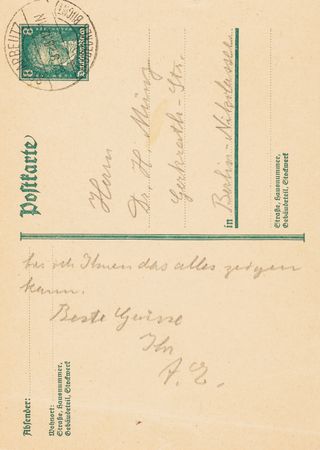 8 Deutsches Reich 8
Postkarte
Herrn
Dr. H. Müntz
Gertraudt-Str.
in Berlin-Nikolassee
Straße, Hausnummer,
Gebäudeteil, Stockwerk
bis ich Ihnen das alles zeigen
kann.
Beste Grüsse
Ihr
A. E.
Absender:
Wohnort:
Straße, Hausnummer,
Gebäudeteil, Stockwerk